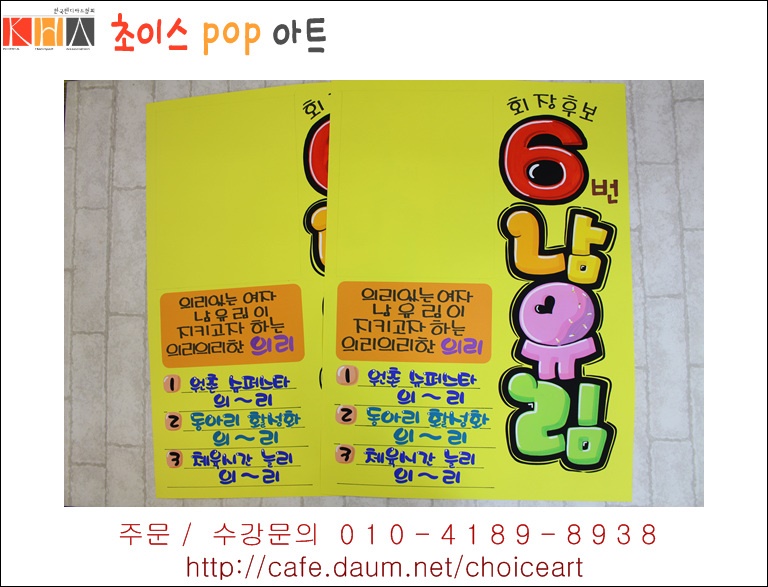 KHA
초이스 pop 아트
회장후보
6번
남유림
의리있는 여자
남유림이
지키고자 하는
의리의리한 의리
1 원촌 슈퍼스타
의~리
2 동아리 활성화
의~리
3 체육시간 늘리
의~리
회
의리있는 여자
남유림이
지키고자 하는
의리의리한 의리
1 원촌 슈퍼스타
의~리
2 동아리 활성화
의~리
3 체육시간 늘리
의~리
주문 / 수강문의 010-4189-8938
http://cafe.daum.net/choiceart